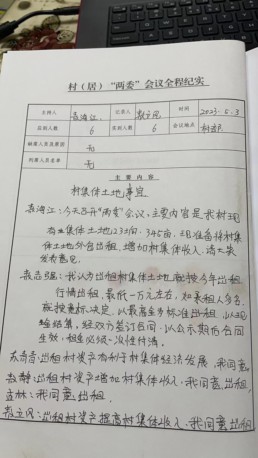 村（居）“两委”会议全程纪实
主持人 袁海江 记录人 敖立风 时间 2023.5.3
应到人数 6 实到人数 6 会议地点 村部
缺席人员及原因 无
列席人员名单 无
主 要 内 容
村集体土地事宜
袁海江：今天召开“两委”会议，主要内容是我村现
有集体土地1233亩、345亩，现准备将村集
体土地外包出租，增加村集体收入，请大家
发表意见。
敖志强：我认为出租村集体土地，应按今年出租
行情出租，最低一万元左右，如果租人多，
就按竞标决定，以最高者为标准出租，以现
金结算，经双方签订合同，以公示期后合同
生效，租金必须一次性付清。
：出租村资产有利于村集体经济发展，我同意。
敖静：出租村资产增加村集体收入，我同意出租。
林：我同意出租。
敖立风：出租村资产提高村集体收入，我同意出租